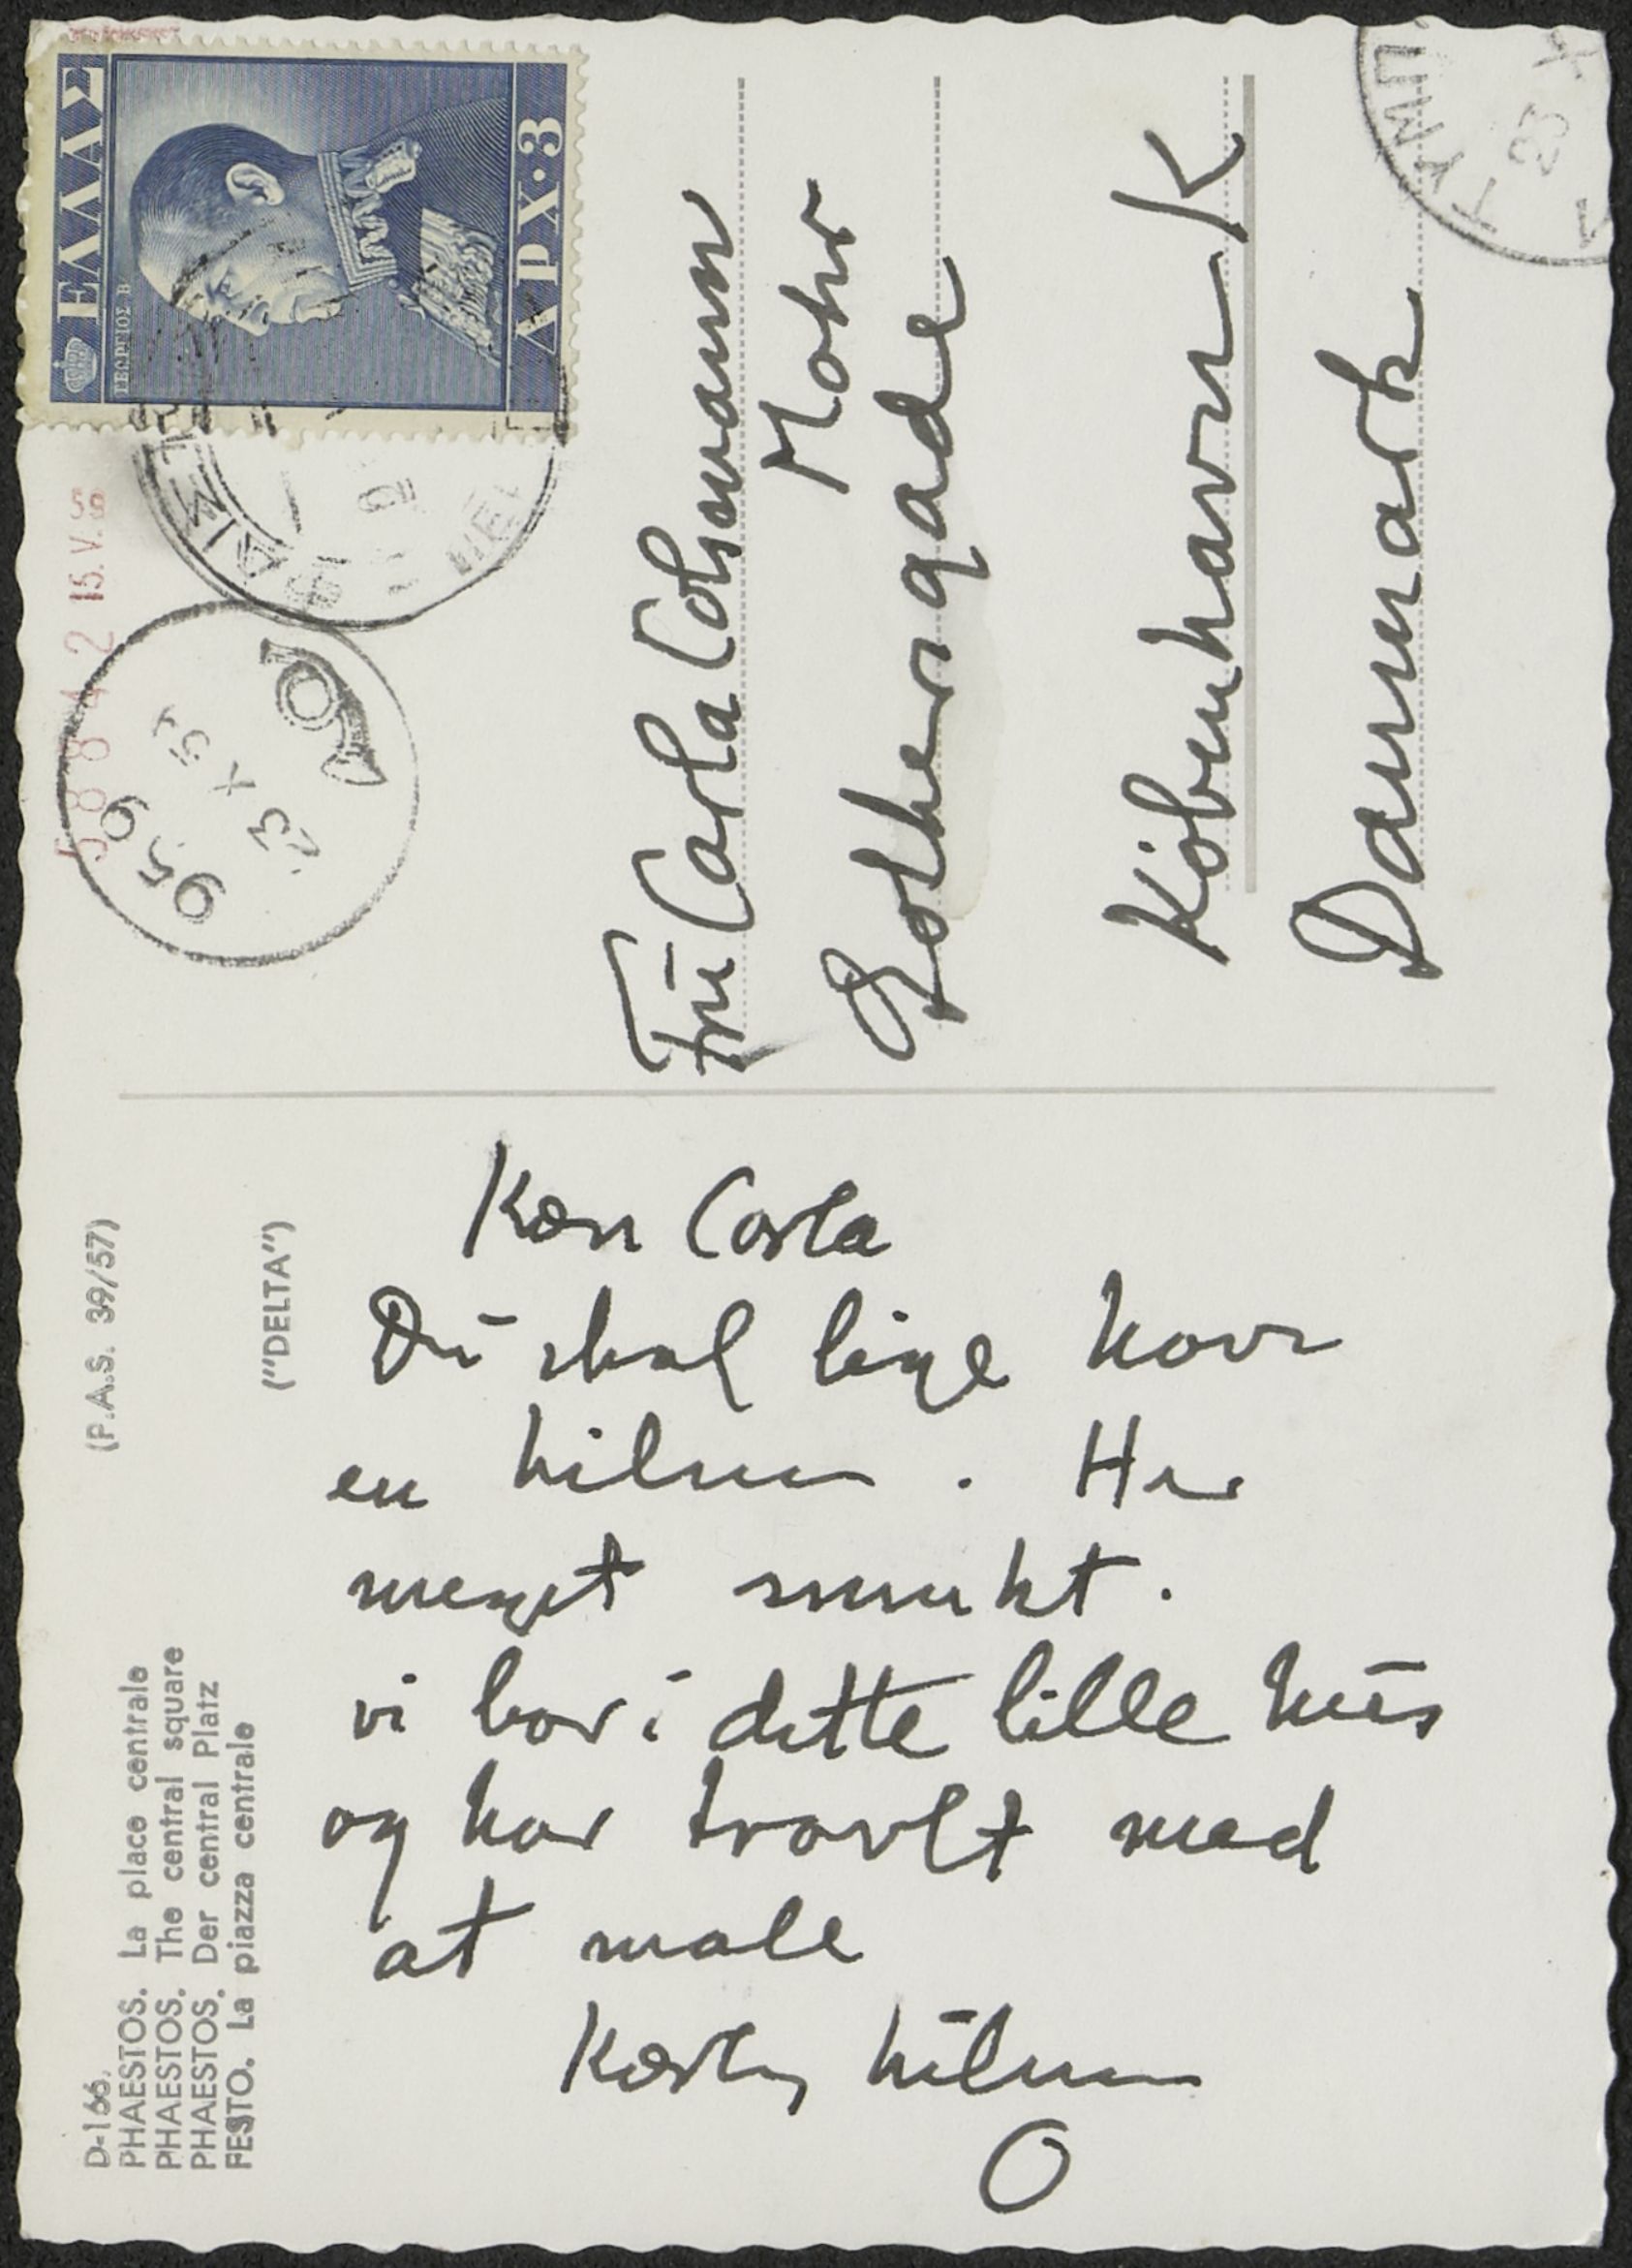 Kære Carla
Du skal lige have
en hilsen. Her
meget smukt.
vi bor i dette lille hus
og har travlt med
at male
Kærlig hilsen
O
Fru Carla Colsmann
Mohr
Gothersgade
Köbenhavn K
Danmark
ΕΛΛΑΣ
ΓΕΩΡΓΙΟΣ Β
ΔΡΧ·3
58842 15.V.58
959
23 X 5
ΤΥΜΠ
23 X
D-166.
PHAESTOS. La place centrale
PHAESTOS. The central square
PHAESTOS. Der central Platz
FESTO. La piazza centrale
(P.A.S. 39/57)
("DELTA")